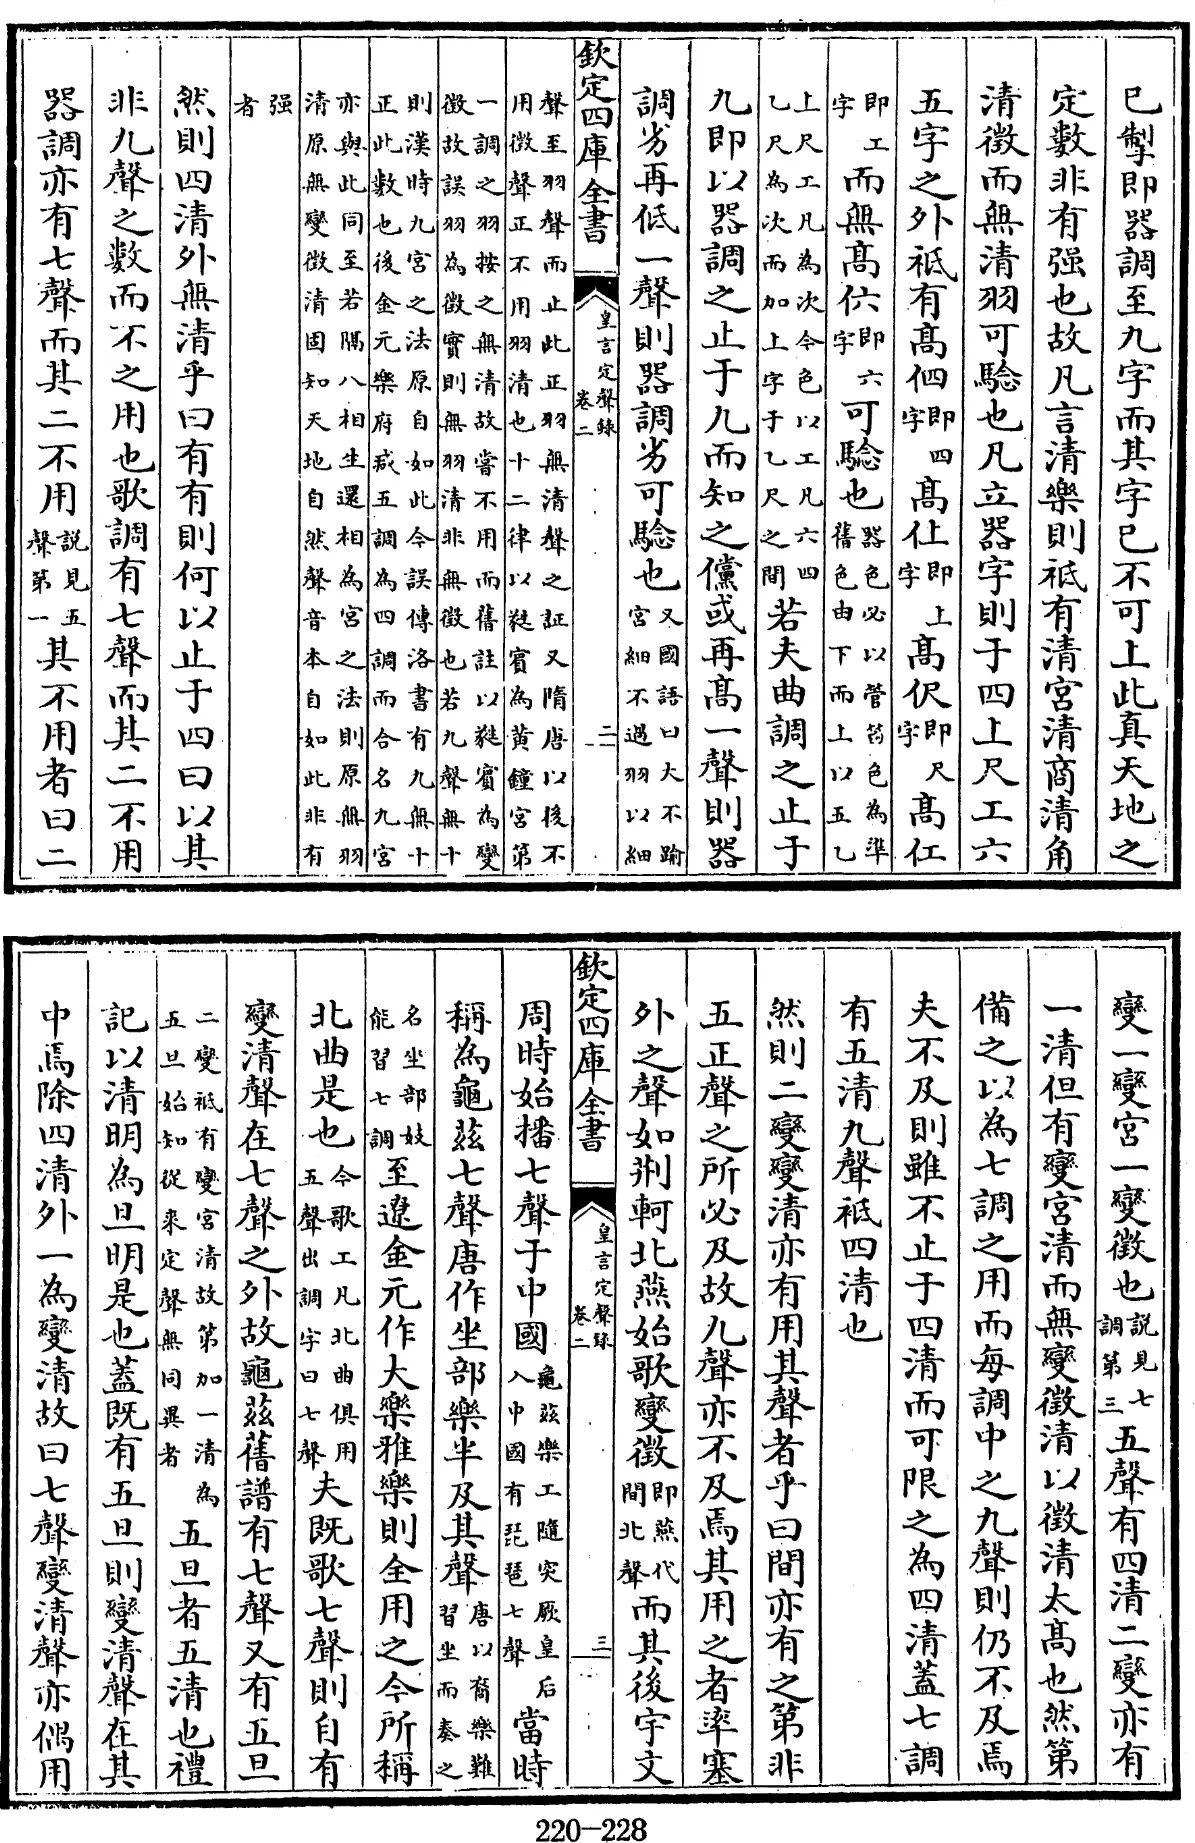 已掣即器調至九字而其字已不可上此真天地之
定數非有强也故凡言清樂則祗有清宮清商清角
清徵而無清羽可驗也凡立器字則于四上尺工六
五字之外祗有髙伵即四字髙仩即上字髙伬即尺字髙仜
即工字而無髙𠆾即六字可驗也器色必以管笛色為準舊色由下而上以五乙
上尺工凡為次今色以工凡六四乙尺為次而加上字于乙尺之間若夫曲調之止于
九即以器調之止于九而知之儻或再髙一聲則器
調劣再低一聲則器調劣可驗也又國語曰大不踰宮細不過羽以細
欽定四庫全書
皇言定聲録
卷二
二
聲至羽聲而止此正羽無清聲之証又隋唐以後不用徵聲正不用羽清也十二律以蕤賓為黄鐘宮第
一調之羽按之無清故嘗不用而舊註以蕤賓為變徵故誤羽為徵實則無羽清非無徵也若九聲無十
則漢時九宮之法原自如此今誤傳洛書有九無十正此數也後金元樂府或五調為四調而合名九宮
亦與此同至若隔八相生還相為宮之法則原無羽清原無變徵清固知天地自然聲音本自如此非有
强者
然則四清外無清乎曰有有則何以止于四曰以其
非九聲之数而不之用也歌調有七聲而其二不用
器調亦有七聲而其二不用說見五聲第一其不用者曰二
變一變宮一變徵也說見七調第三五聲有四清二變亦有
一清但有變宮清而無變徵清以徵清太髙也然第
備之以為七調之用而每調中之九聲則仍不及焉
夫不及則雖不止于四清而可限之為四清蓋七調
有五清九聲祗四清也
然則二變變清亦有用其聲者乎曰間亦有之第非
五正聲之所必及故九聲亦不及焉其用之者率塞
外之聲如荆軻北燕始歌變徵即燕代間北聲而其後宇文
欽定四庫全書
皇言定聲録
卷二
三
周時始播七聲于中國龜茲樂工隨突厥皇后入中國有琵琶七聲當時
稱為龜茲七聲唐作坐部樂半及其聲唐以裔樂難習坐而奏之
名坐部妓能習七調至遼金元作大樂雅樂則全用之今所稱
北曲是也今歌工凡北曲俱用五聲出調字曰七聲夫既歌七聲則自有
變清聲在七聲之外故龜茲舊譜有七聲又有五旦
二變祗有變宮清故第加一清為五旦始知從來定聲無同異者五旦者五清也禮
記以清明為旦明是也蓋既有五旦則變清聲在其
中焉除四清外一為變清故曰七聲變清聲亦偶用
220-228